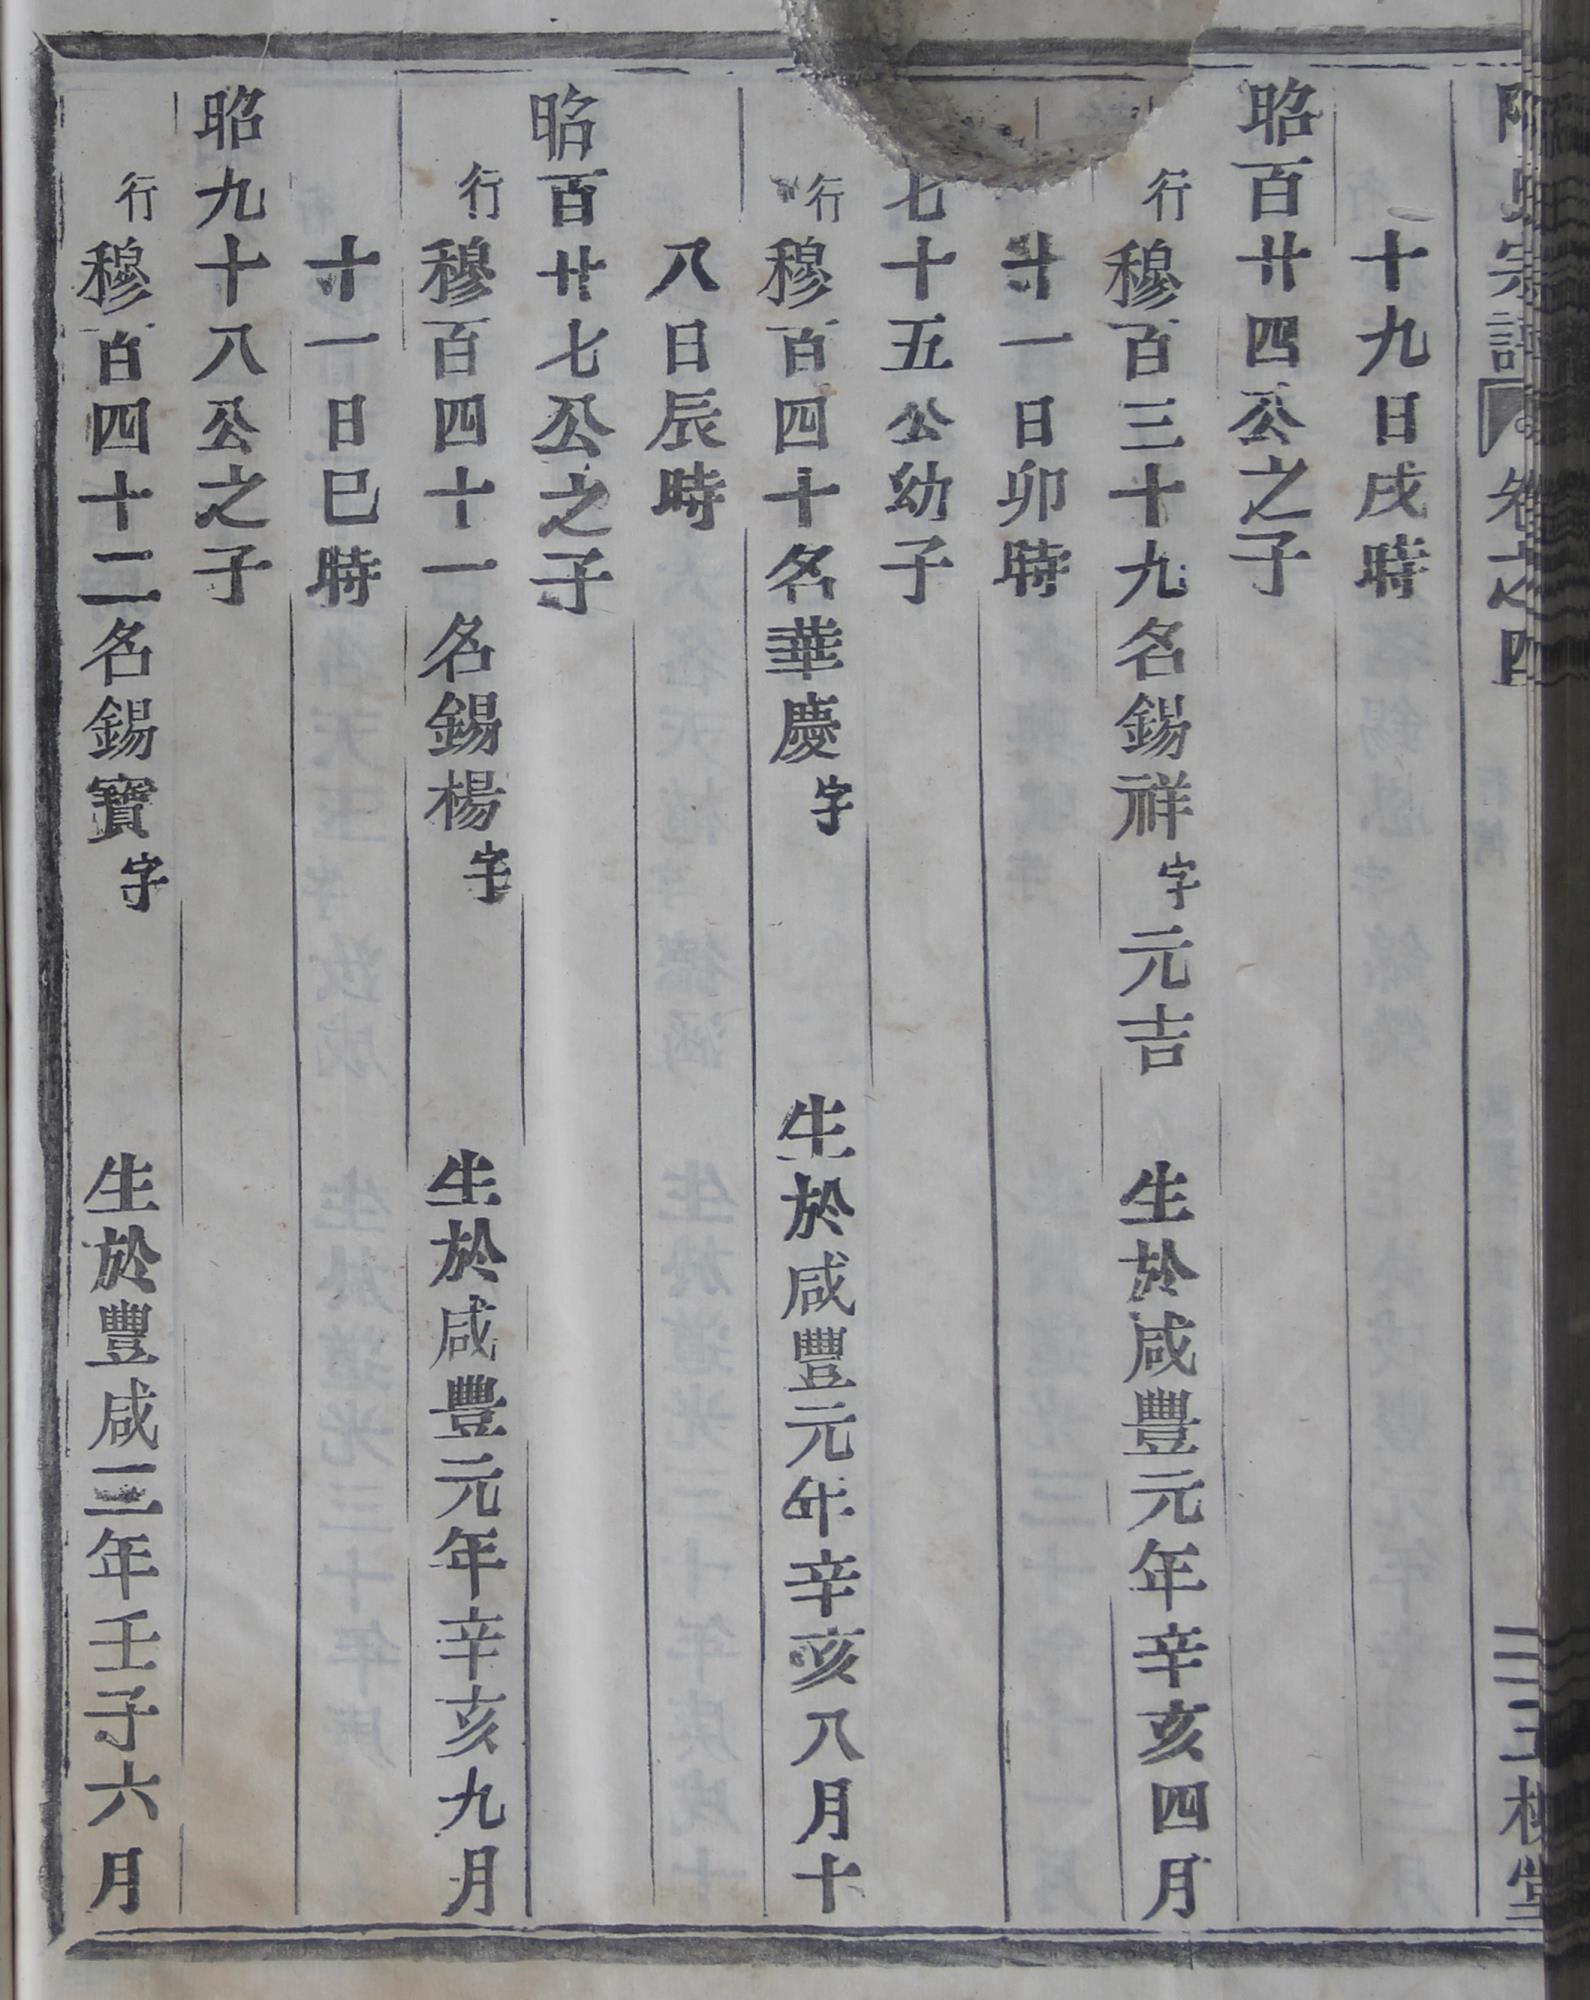 宗譜 卷之四 三 三槐堂
十九日戌時
昭百廿四公之子
行穆百三十九名錫祥字元吉 生於咸豐元年辛亥四月
廿一日卯時
七十五公幼子
行穆百四十名華慶字 生於咸豐元年辛亥八月十
八日辰時
昭百廿七公之子
行穆百四十一名錫楊字 生於咸豐元年辛亥九月
十一日巳時
昭九十八公之子
行穆百四十二名錫寶字 生於豐咸三年壬子六月